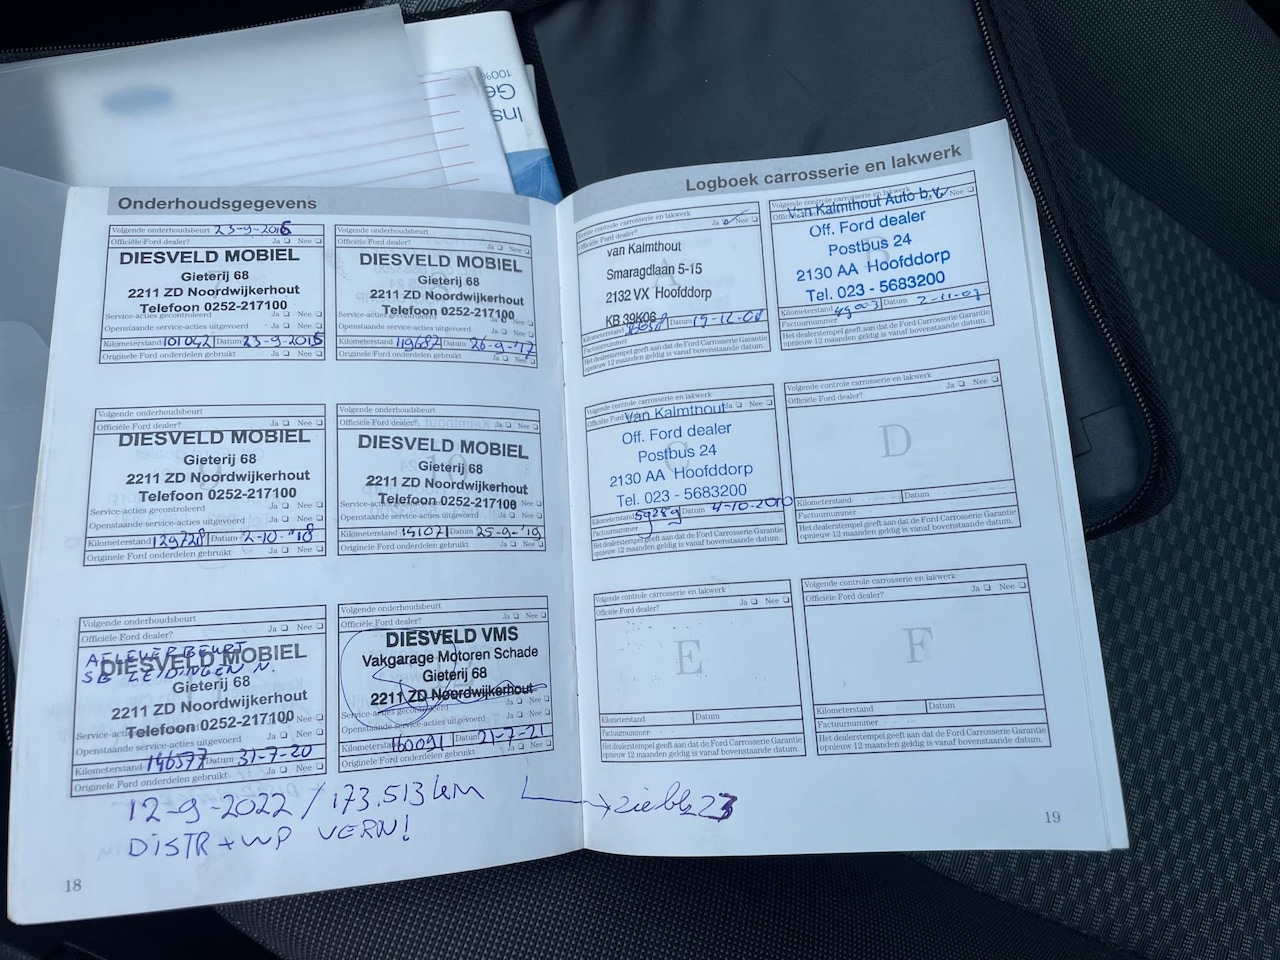 Onderhoudsgegevens
Volgende onderhoudsbeurt 23-9-2015
Officiële Ford dealer? Ja Nee
DIESVELD MOBIEL
Gieterij 68
2211 ZD Noordwijkerhout
Telefoon 0252-217100
Service-acties gecontroleerd Ja Nee
Openstaande service-acties uitgevoerd Ja Nee
Kilometerstand 101042 Datum 23-9-2015
Originele Ford onderdelen gebruikt Ja Nee
Officiële Ford dealer? Ja Nee
DIESVELD MOBIEL
Gieterij 68
2211 ZD Noordwijkerhout
Telefoon 0252-217100
Openstaande service-acties uitgevoerd Ja Nee
Kilometerstand 119687 Datum 26-9-'17
Originele Ford onderdelen gebruikt Ja Nee
Volgende onderhoudsbeurt
Officiële Ford dealer? Ja Nee
DIESVELD MOBIEL
Gieterij 68
2211 ZD Noordwijkerhout
Telefoon 0252-217100
Service-acties gecontroleerd Ja Nee
Openstaande service-acties uitgevoerd Ja Nee
Kilometerstand 129728 Datum 2-10-'18
Originele Ford onderdelen gebruikt Ja Nee
Volgende onderhoudsbeurt
Officiële Ford dealer? Ja Nee
DIESVELD MOBIEL
Gieterij 68
2211 ZD Noordwijkerhout
Telefoon 0252-217100
Service-acties gecontroleerd Nee
Openstaande service-acties uitgevoerd Ja Nee
Kilometerstand 141071 Datum 25-9-'19
Originele Ford onderdelen gebruikt Ja Nee
Volgende onderhoudsbeurt
Officiële Ford dealer? Ja Nee
AFLEVERBEURT
DIESVELD MOBIEL
LEIDINGEN N.
Gieterij 68
2211 ZD Noordwijkerhout
Telefoon 0252-217100
Openstaande service-acties uitgevoerd Ja Nee
Kilometerstand 146577 Datum 31-7-20
Originele Ford onderdelen gebruikt Ja Nee
Volgende onderhoudsbeurt
Officiële Ford dealer? Ja Nee
DIESVELD VMS
Vakgarage Motoren Schade
Gieterij 68
2211 ZD Noordwijkerhout
Service-acties gecontroleerd Ja Nee
Openstaande service-acties uitgevoerd Ja Nee
Kilometerstand 160091 Datum 21-7-21
Originele Ford onderdelen gebruikt Ja Nee
12-9-2022 / 173.513 km
DISTR + WP VERN!
18
Logboek carrosserie en lakwerk
Eerste controle carrosserie en lakwerk
Officiële Ford dealer? Ja Nee
A
van Kalmthout
Smaragdlaan 5-15
2132 VX Hoofddorp
KB 39K06
Kilometerstand Datum 19-12-08
Factuurnummer
Het dealerstempel geeft aan dat de Ford Carrosserie Garantie
opnieuw 12 maanden geldig is vanaf bovenstaande datum.
Volgende controle carrosserie en lakwerk Nee
Van Kalmthout Auto b.v.
Off. Ford dealer
B
Postbus 24
2130 AA Hoofddorp
Tel. 023 - 5683200
Kilometerstand 49003 Datum 2-11-09
Factuurnummer
Het dealerstempel geeft aan dat de Ford Carrosserie Garantie
opnieuw 12 maanden geldig is vanaf bovenstaande datum.
Volgende controle carrosserie en lakwerk
Ja Nee
Van Kalmthout
Off. Ford dealer
C
Postbus 24
2130 AA Hoofddorp
Tel. 023 - 5683200
Kilometerstand 59289 Datum 4-10-2010
Factuurnummer
Het dealerstempel geeft aan dat de Ford Carrosserie Garantie
opnieuw 12 maanden geldig is vanaf bovenstaande datum.
Volgende controle carrosserie en lakwerk
Officiële Ford dealer? Ja Nee
D
Kilometerstand Datum
Factuurnummer
Het dealerstempel geeft aan dat de Ford Carrosserie Garantie
opnieuw 12 maanden geldig is vanaf bovenstaande datum.
Volgende controle carrosserie en lakwerk
Officiële Ford dealer? Ja Nee
E
Kilometerstand Datum
Factuurnummer
Het dealerstempel geeft aan dat de Ford Carrosserie Garantie
opnieuw 12 maanden geldig is vanaf bovenstaande datum.
Volgende controle carrosserie en lakwerk
Officiële Ford dealer? Ja Nee
F
Kilometerstand Datum
Factuurnummer
Het dealerstempel geeft aan dat de Ford Carrosserie Garantie
opnieuw 12 maanden geldig is vanaf bovenstaande datum.
zie blz 23
19